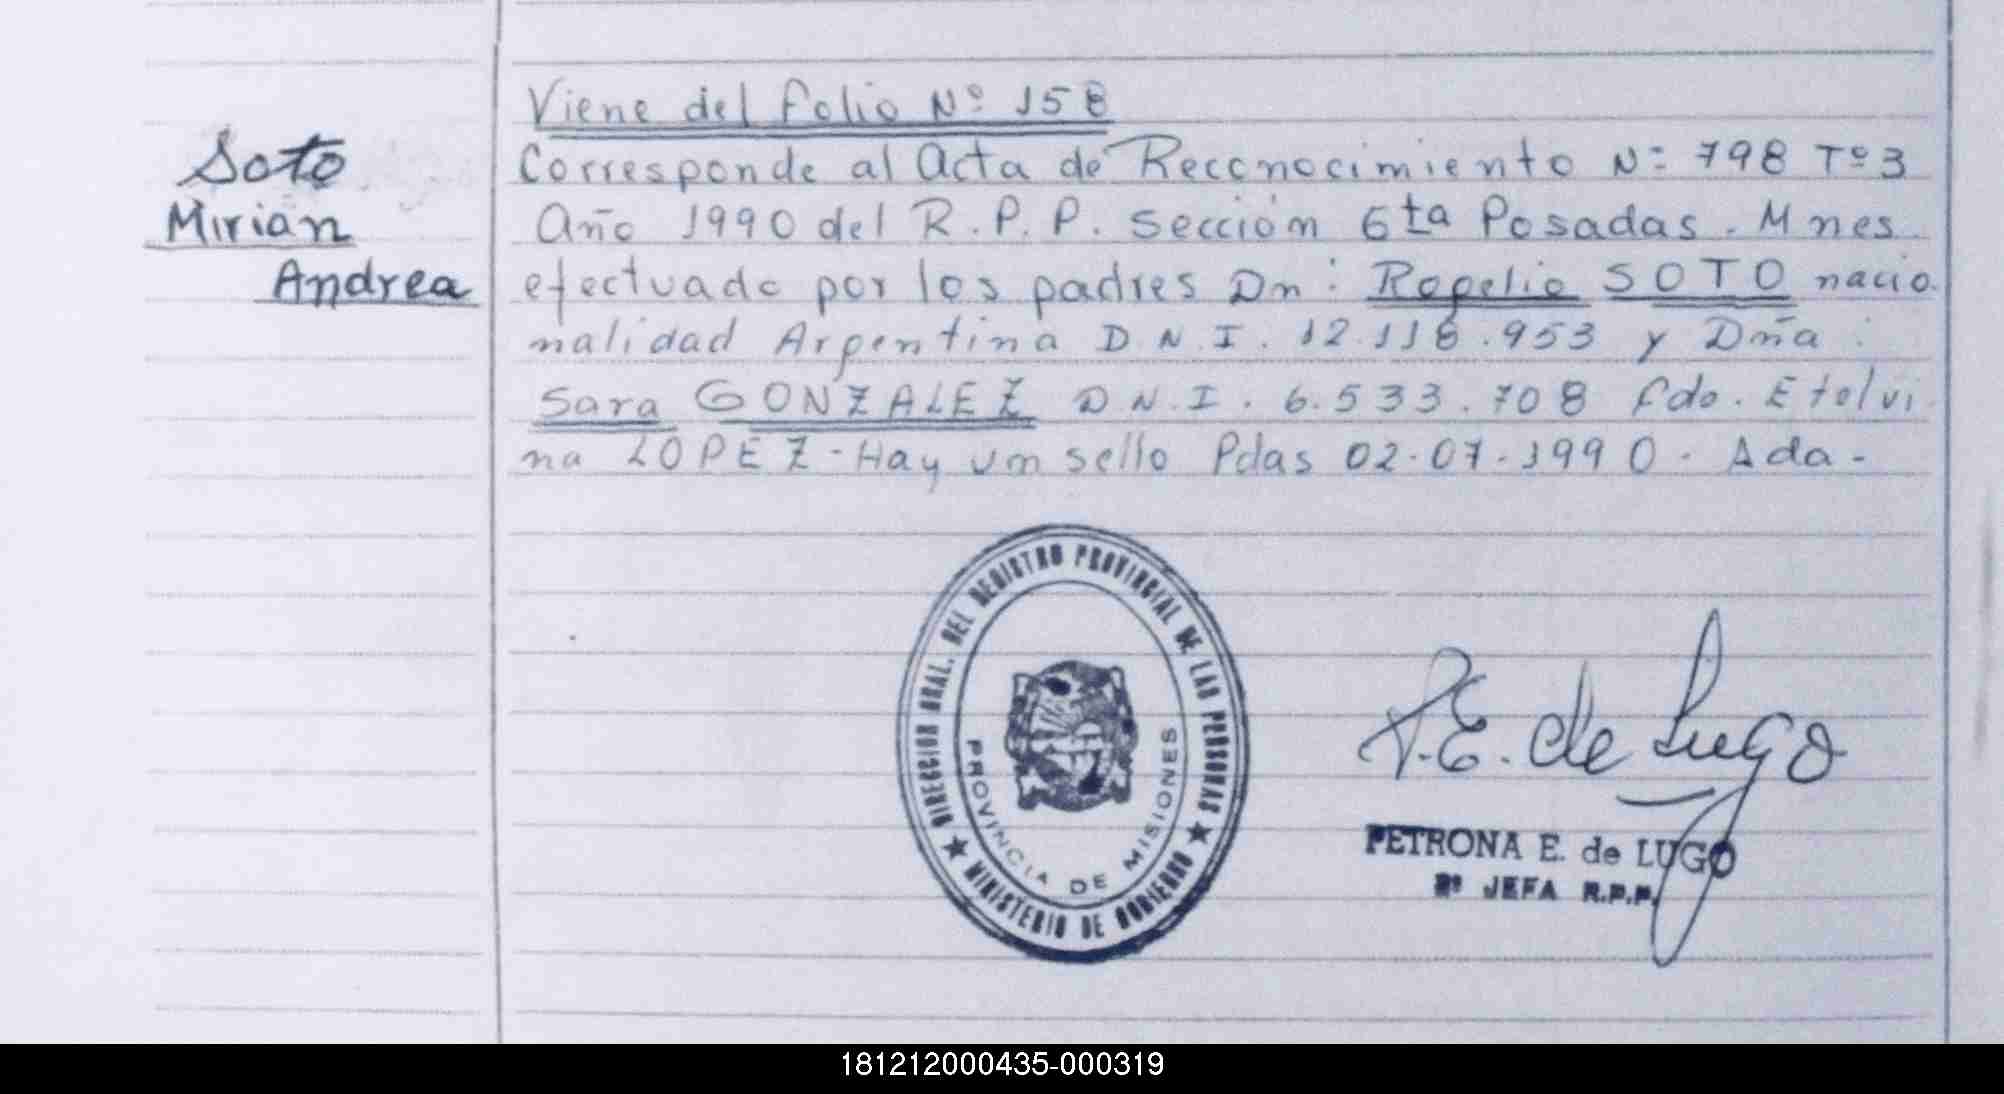 Viene del folio Nº 158
Soto
Mirian
Andrea
Corresponde al Acta de Reconocimiento Nº 798 Tº3
Año 1990 del R.P.P. Sección 6ta Posadas. Mnes
efectuado por los padres Dn: Rogelio SOTO nacio
nalidad Argentina D.N.I. 12.118.953 y Dña:
Sara GONZALEZ D.N.I. 6.533.708 fdo. Etelvi
na LOPEZ-Hay un sello Pdas 02.07.1990. Ada-
DIRECCION GRAL. DEL REGISTRO PROVINCIAL DE LAS PERSONAS
PROVINCIA DE MISIONES
★ MINISTERIO DE GOBIERNO ★
P.E. de Lugo
PETRONA E. de LUGO
2º JEFA R.P.P.
181212000435-000319